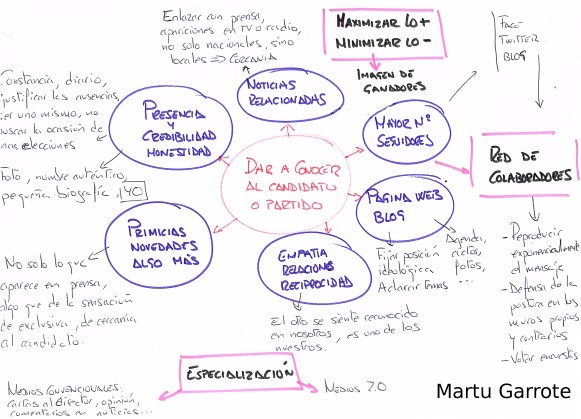 Enlazar con prensa,
apariciones en TV o radio,
no solo nacionales, sino
locales => CERCANIA
MAXIMIZAR LO +
MINIMIZAR LO -
IMAGEN DE
GANADORES
FACE
TWITTER
BLOG
NOTICIAS
RELACIONADAS
Constancia, diario,
justificar las ausencias,
ser uno mismo, no
buscar la ocasión de
las elecciones
PRESENCIA
Y
CREDIBILIDAD
HONESTIDAD
MAYOR Nº
SEGUIDORES
DAR A CONOCER
AL CANDIDATO
O PARTIDO
RED DE
COLABORADORES
Foto, nombre auténtico,
pequeña biografía 140
PAGINA WEB
BLOG
PRIMICIAS
NOVEDADES
ALGO MÁS
EMPATÍA
RELACIONES
RECIPROCIDAD
Fijar posición
ideológica
Aclarar temas
Agenda,
actos,
fotos,
...
- Reproducir
exponencialmente
el mensaje
- Defensa de la
postura en los
muros propios
y contrarios
- Votar encuestas
No solo lo que
aparece en prensa,
algo que de la sensación
de exclusiva, de cercanía
al candidato.
El otro se siente reconocido
en nosotros, es uno de los
nuestros.
ESPECIALIZACIÓN
MEDIOS CONVENCIONALES:
cartas al director, opinión,
comentarios a noticias...
MEDIOS 2.0
Martu Garrote